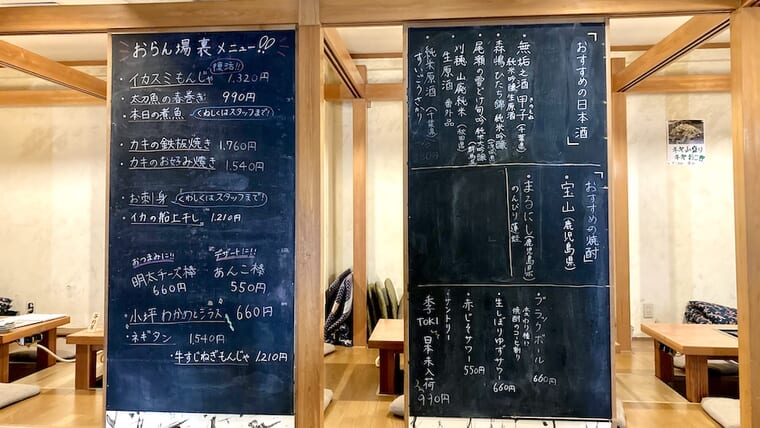 おらん場裏メニュー!!
復活!!
・イカスミもんじゃ 1.320円
・太刀魚の春巻き 990円
・本日の煮魚 くわしくはスタッフまで!
・カキの鉄板焼き 1.760円
・カキのお好み焼き 1.540円
・お刺身 くわしくはスタッフまで!
・イカの船上干し 1.210円
おつまみに!!
明太チーズ棒
660円
デザートに!!
あんこ棒
550円
・小坪わかめとシラス 660円
・ネギタン 1.540円
・牛すじねぎもんじゃ 1.210円
「おすすめの日本酒」
・無垢之酒 甲子(千葉県)
純米吟醸生原酒
・森嶋 ひたち錦 純米吟醸
・尾瀬の雪どけ 旬吟 純米大吟醸(群馬)
・刈穂 山廃純米(秋田県)
生原酒 番外品
・純米原酒(千葉県)
「おすすめの焼酎」
・宝山(鹿児島県)
・まるにし(鹿児島県)
のんびり蓮蔵
・ブラックボール 660円
変わり種!!
焼酎のコーヒー割り
・生しぼりゆずサワー 660円
・赤じそサワー 550円
・サントリー
季 Toki 日本未入荷 990円